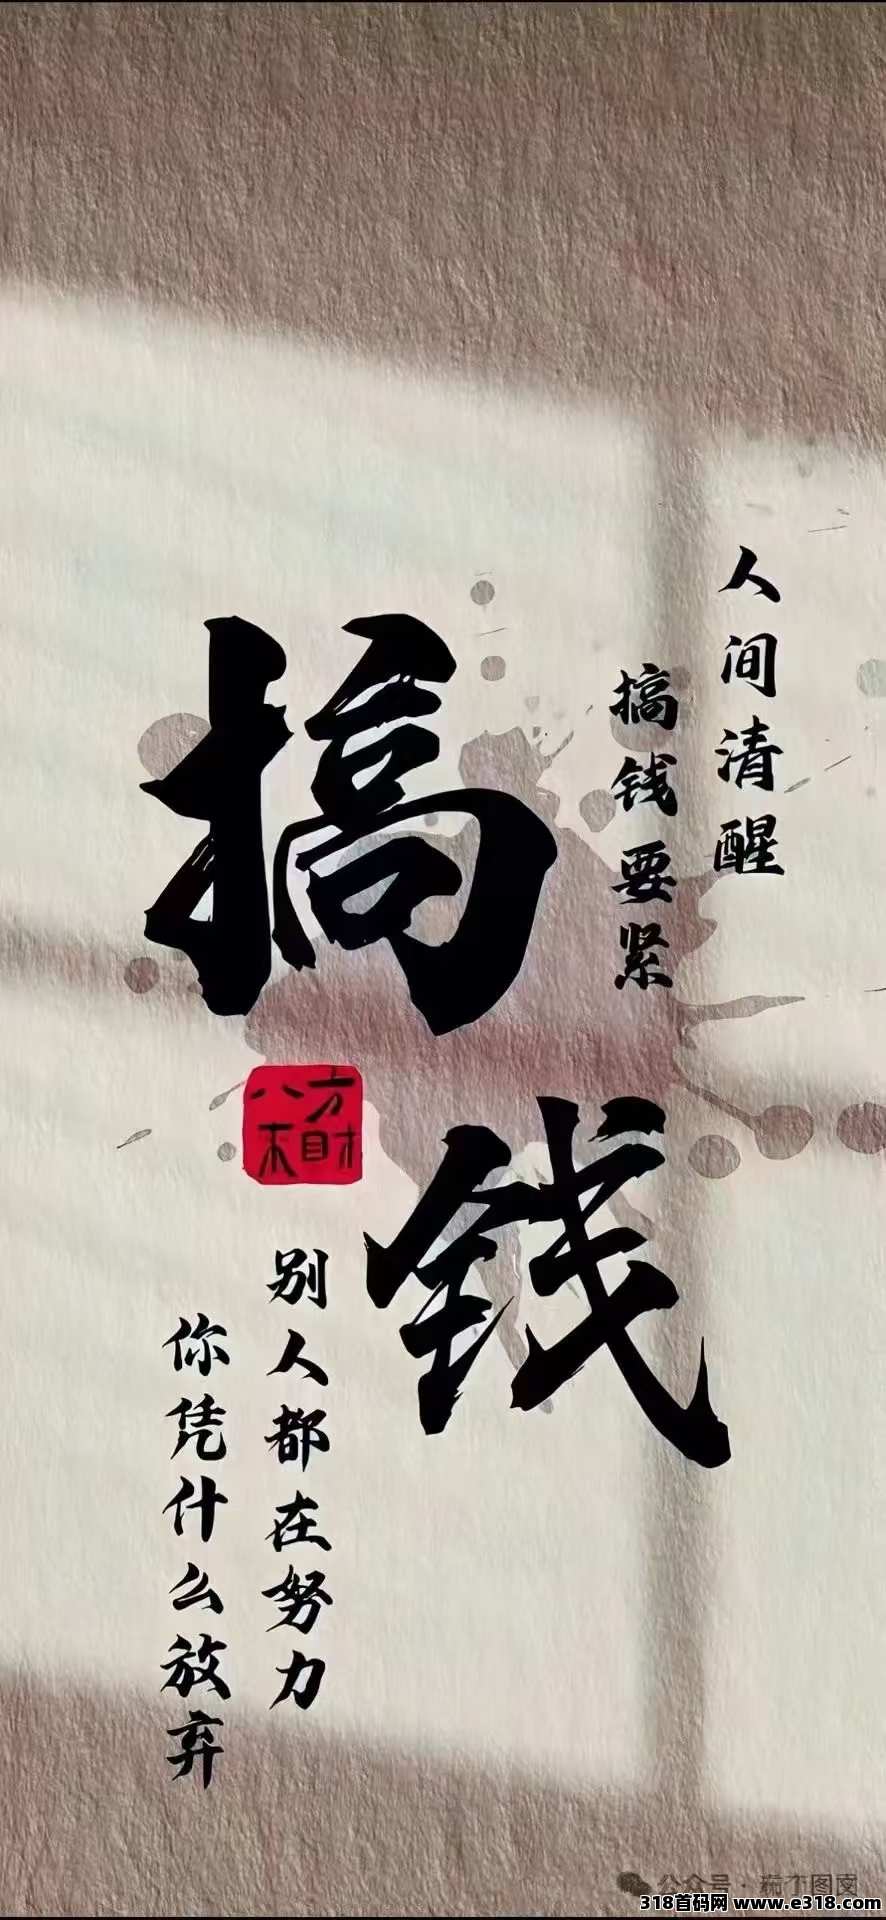 人间清醒
搞钱要紧
搞钱
八方来财
别人都在努力
你凭什么放弃
公众号·
318首码网 www.e318.com